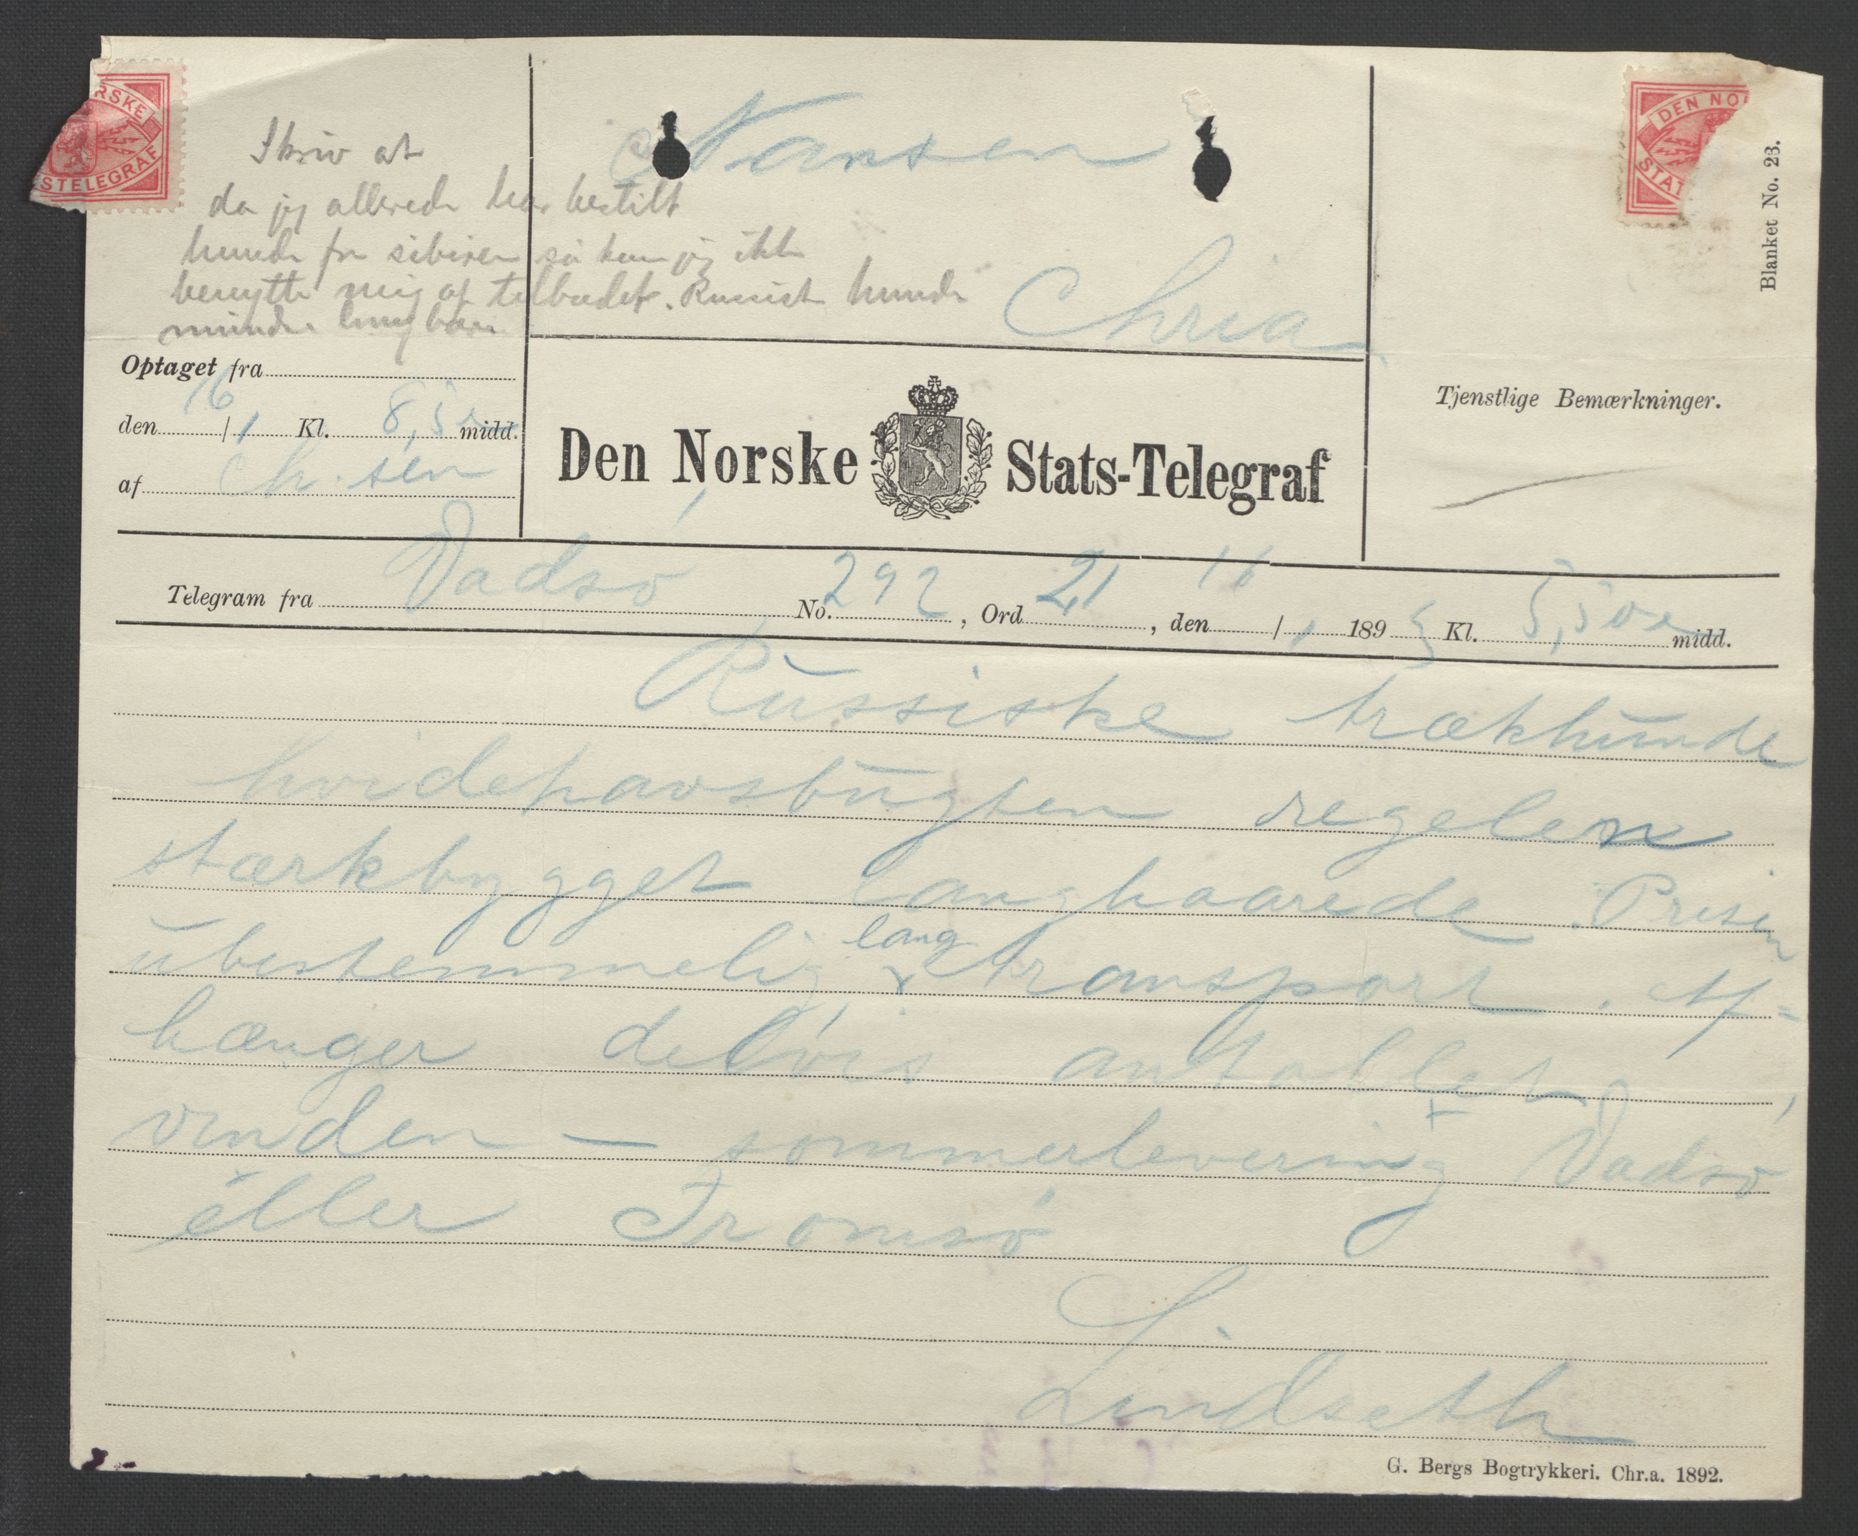 RSKE
STELEGRAF
DEN NO
STAT
Blanket No. 23.
Skriv at
da jeg allerede har bestilt
hunde fra sibirien så kan jeg ikke
benytte mig af tilbudet. Russiske hunde
mindre
Nansen
Chria
Optaget fra
den 16/1 Kl. 8,50 midd.
af Ch. sen
Den Norske Stats-Telegraf
Tjenstlige Bemærkninger.
Telegram fra Vadsø No. 292, Ord 21, den 16/1 1893 Kl. 5,50 e midd.
Russiske trækhunde
hvidehavsbugten regelen
stærkbygget langhaarede. Prisen
ubestemmelig, lang transport. Af=
hænger delvis antallet,
vinden — sommerlevering Vadsø
eller Tromsø
Lindseth
G. Bergs Bogtrykkeri. Chr.a. 1892.